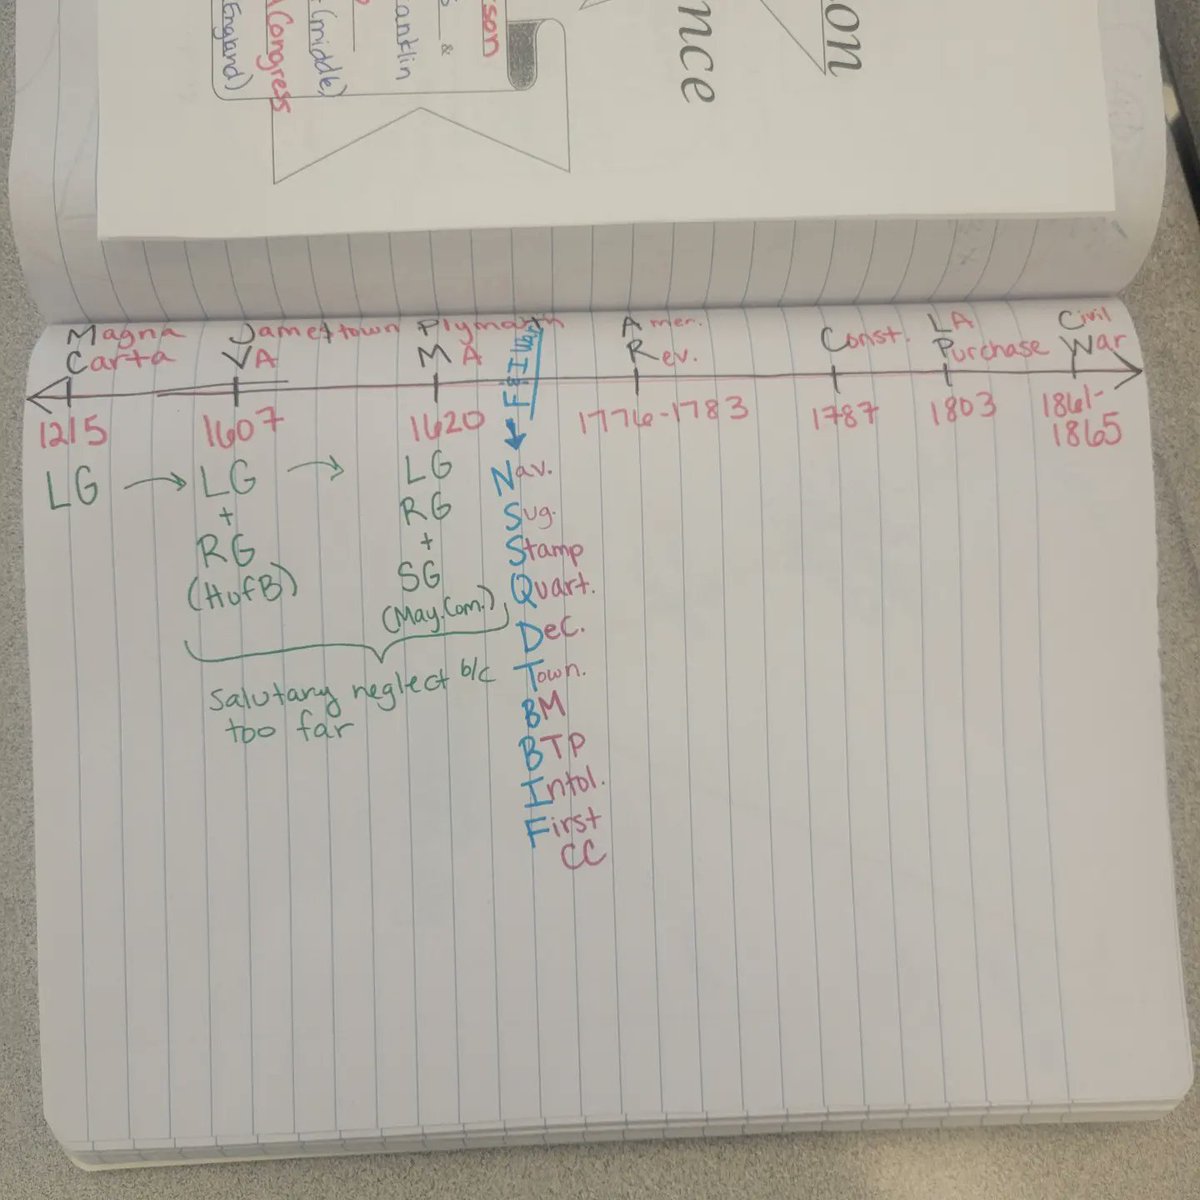 son
& 
anklin
(middle,
Congress
England)
nce
on
Magna
Carta
Jamestown
VA
Plymouth
MA
F & I War
Amer.
Rev.
Const.
LA
Purchase
Civil
War
1215
1607
1620
1776-1783
1787
1803
1861-
1865
LG → LG → LG
+
RG
(HofB)
RG
+
SG
(May.Com.)
Salutary neglect b/c
too far
Nav.
Sug.
Stamp
Quart.
Dec.
Town.
BM
BTP
Intol.
First
CC